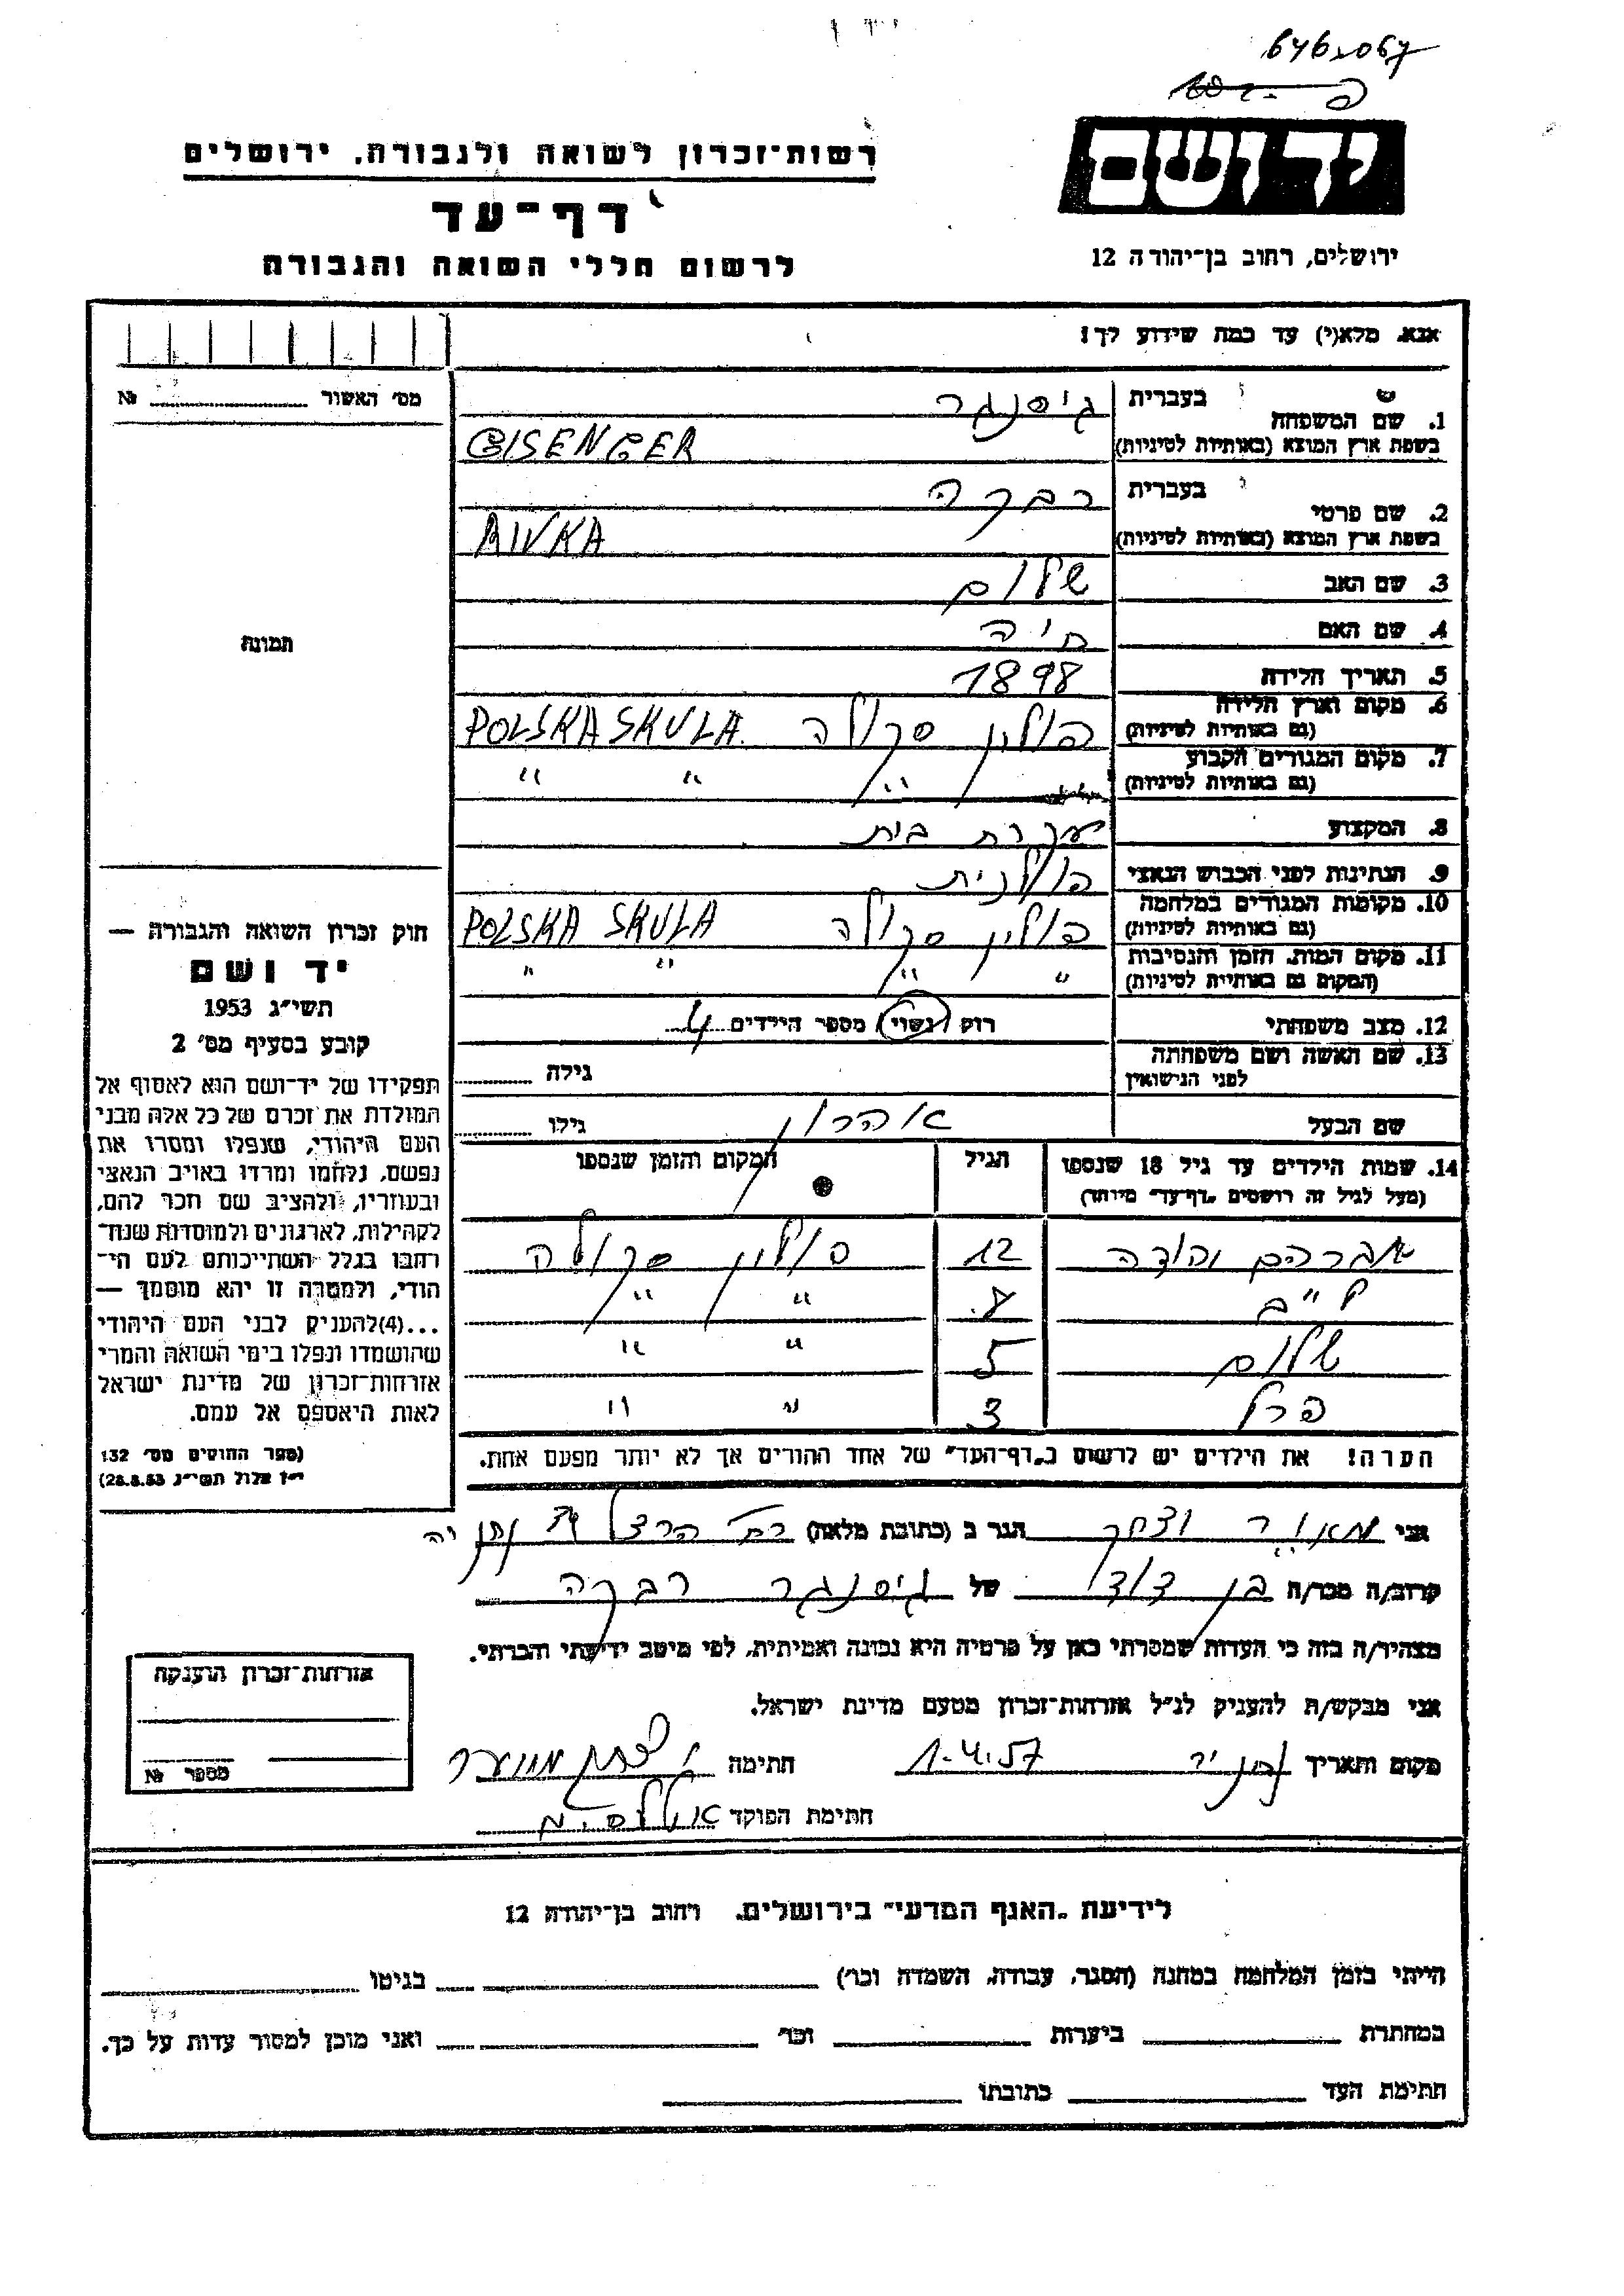 יד ושם
רשות־זכרון לשואה ולגבורה, ירושלים
דף־עד
לרשום חללי השואה והגבורה
ירושלים, רחוב בן־יהודה 12
אנא, מלא(י) עד כמה שידוע לך!
מס׳ האשור № 
1. שם המשפחה
בעברית גיסנגר
בשפת ארץ המוצא (באותיות לטיניות) GISENGER
2. שם פרטי
בעברית רבקה
בשפת ארץ המוצא (באותיות לטיניות) RIVKA
3. שם האב שלום
4. שם האם חיה
5. תאריך הלידה 1898
6. מקום וארץ הלידה (גם באותיות לטיניות) פולין סקולה POLSKA SKULA
7. מקום המגורים הקבוע (גם באותיות לטיניות) " " " "
8. המקצוע עקרת בית
9. הנתינות לפני הכבוש הנאצי פולנית
10. מקומות המגורים במלחמה (גם באותיות לטיניות) פולין סקולה POLSKA SKULA
11. מקום המות, הזמן והנסיבות (המקום גם באותיות לטיניות) " " " "
12. מצב משפחתי רוק נשוי מספר הילדים 4
13. שם האשה ושם משפחתה לפני הנישואין גילה
שם הבעל אהרון גילו
14. שמות הילדים עד גיל 18 שנספו הגיל המקום והזמן שנספו
(מעל לגיל זה רושמים „דף־עד״ מיוחד)
אברהם יהודה 12 פולין סקולה
8 " "
שלום 5 " "
פרל 3 " "
הערה! את הילדים יש לרשום ב„דף־העד״ של אחד ההורים אך לא יותר מפעם אחת.
תמונה
חוק זכרון השואה והגבורה —
יד ושם
תשי״ג 1953
קובע בסעיף מס׳ 2
תפקידו של יד־ושם הוא לאסוף אל
המולדת את זכרם של כל אלה מבני
העם היהודי, שנפלו ומסרו את
נפשם, נלחמו ומרדו באויב הנאצי
ובעוזריו, ולהציב שם וזכר להם,
לקהילות, לארגונים ולמוסדות שנח־
רבו בגלל השתייכותם לעם הי־
הודי, ולמטרה זו יהא מוסמך —
...(4)להעניק לבני העם היהודי
שהושמדו ונפלו בימי השואה והמרי
אזרחות־זכרון של מדינת ישראל
לאות היאספם אל עמם.
(ספר החוקים מס׳ 132
י״ז אלול תשי״ג 28.8.53)
אני מאיר יצחק הגר ב (כתובת מלאה) רח׳ הרצל נתניה
קרוב/ה מכר/ה בן דוד של גיסנגר רבקה
מצהיר/ה בזה כי העדות שמסרתי כאן על פרטיה היא נכונה ואמיתית, לפי מיטב ידיעתי והכרתי.
אני מבקש/ת להעניק לנ״ל אזרחות־זכרון מטעם מדינת ישראל.
מקום ותאריך 1.4.57 חתימה
חתימת הפוקד
אזרחות־זכרון הוענקה
מספר №
לידיעת „האגף המדעי״ בירושלים, רחוב בן־יהודה 12
הייתי בזמן המלחמה במחנה (הסגר, עבודה, השמדה וכו׳) בגיטו
במחתרת ביערות וכו׳ ואני מוכן למסור עדות על כך.
חתימת העד כתובתו